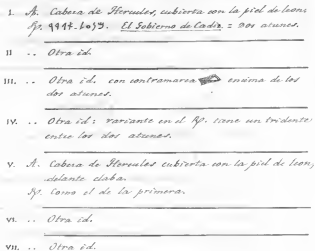 I. A. Cabeza de Hercules, cubierta con la piel de leon=
El Gobierno de Cadiz = Dos atunes.
II .. Otra id.
III. .. Otra id. con contramarca encima de los
dos atunes.
IV. .. Otra id: variante en el R. tiene un tridente
entre los dos atunes.
V. A. Cabeza de Hercules cubierta con la piel de leon,
delante claba.
R. Como el de la primera.
VI. .. Otra id.
VII. .. Otra id.